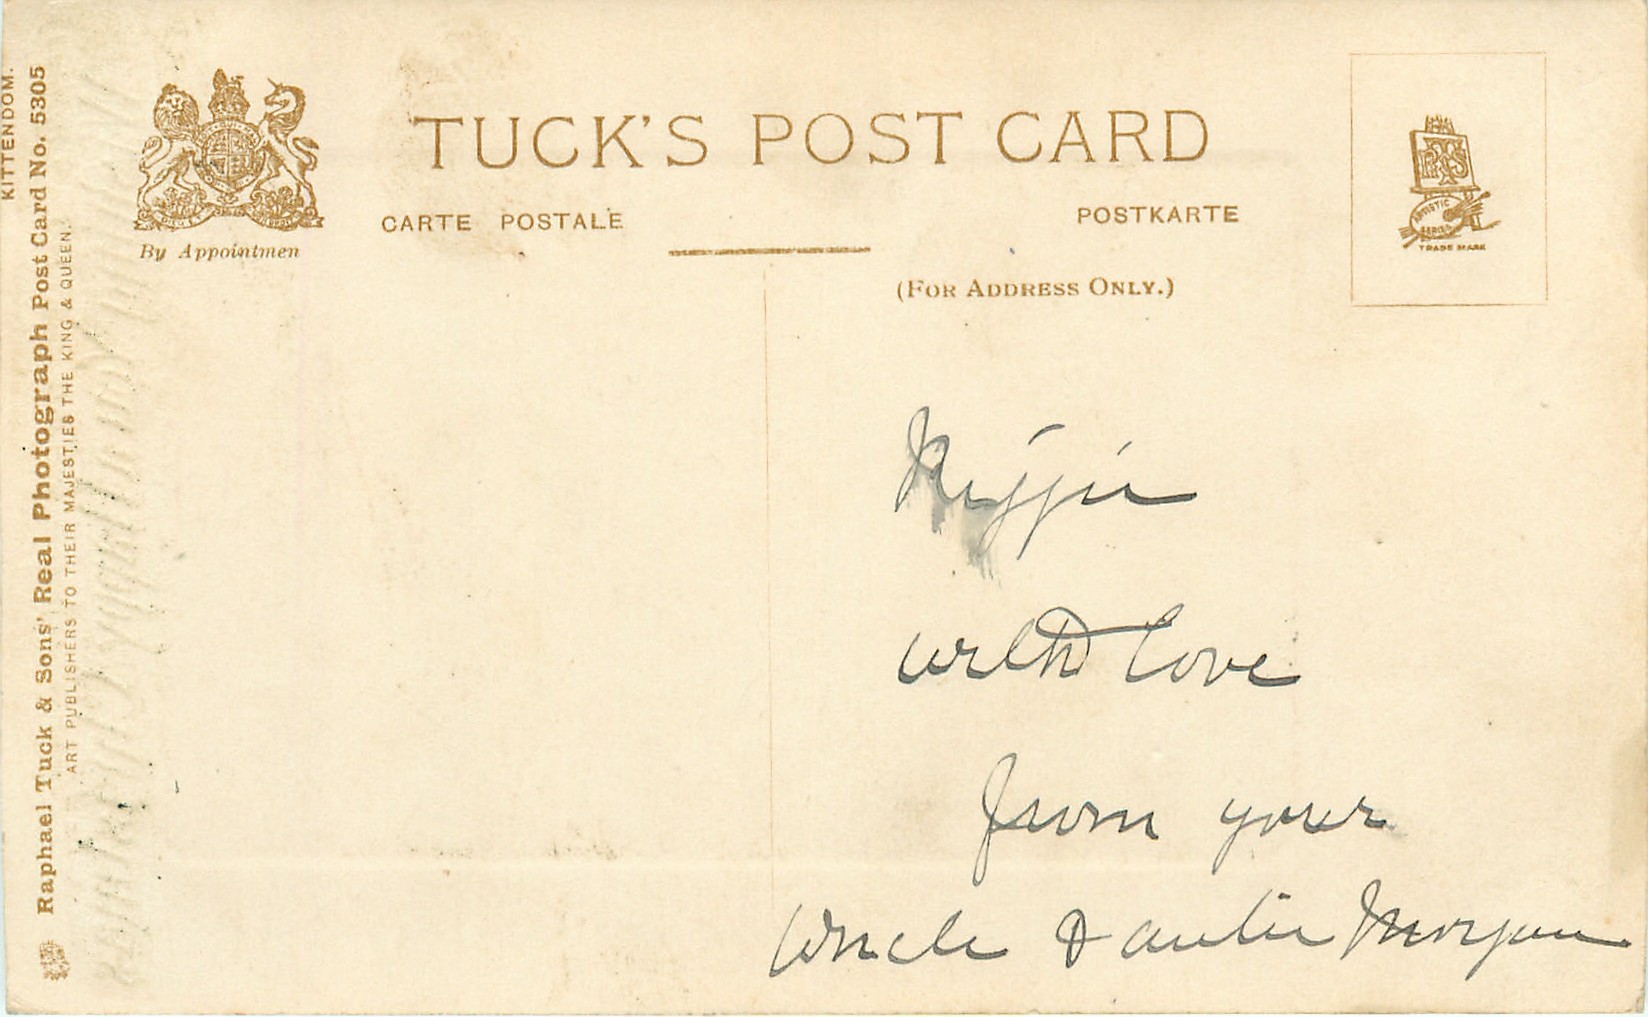 KITTENDOM.
Raphael Tuck & Sons' Real Photograph Post Card No. 5305
ART PUBLISHERS TO THEIR MAJESTIES THE KING & QUEEN.
By Appointmen
TUCK'S POST CARD
CARTE POSTALE
POSTKARTE
(FOR ADDRESS ONLY.)
RTS
ARTISTIC
SERIES
TRADE MARK
with love
from your
Uncle & auntie Morgan